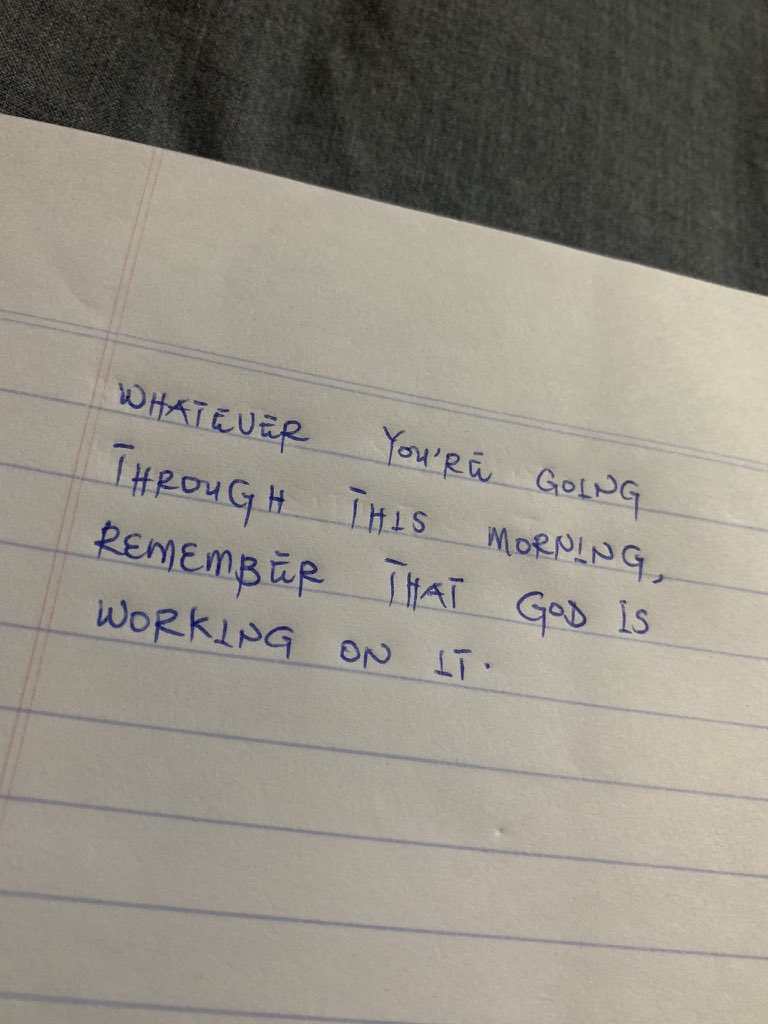 WHATEVER YOU'RE GOING
THROUGH THIS MORNING,
REMEMBER THAT GOD IS
WORKING ON IT.